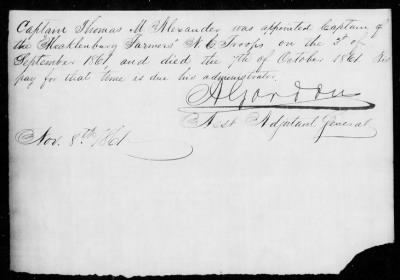 Captain Thomas M Alexander was appointed Captain of
the Mecklenburg Farmers' N. C. Troops on the 3d of
September 1861, and died the 7th of October 1861 His
pay for that time is due his administrator.
A Gordon
Asst. Adjutant General
Nov. 8th 1861